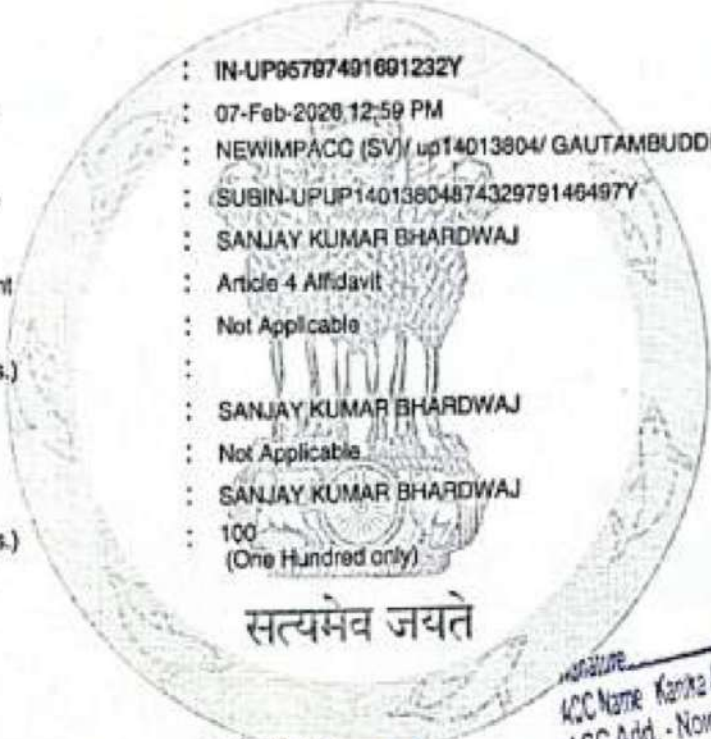 : IN-UP95797491691232Y
: 07-Feb-2026 12:59 PM
: NEWIMPACC (SV)/ up14013804/ GAUTAMBUDD
: SUBIN-UPUP1401380487432979146497Y
: SANJAY KUMAR BHARDWAJ
: Article 4 Affidavit
: Not Applicable
s.) :
: SANJAY KUMAR BHARDWAJ
: Not Applicable
: SANJAY KUMAR BHARDWAJ
s.) : 100
(One Hundred only)
सत्यमेव जयते
ACC Name Kanika
ACC Add. - Now